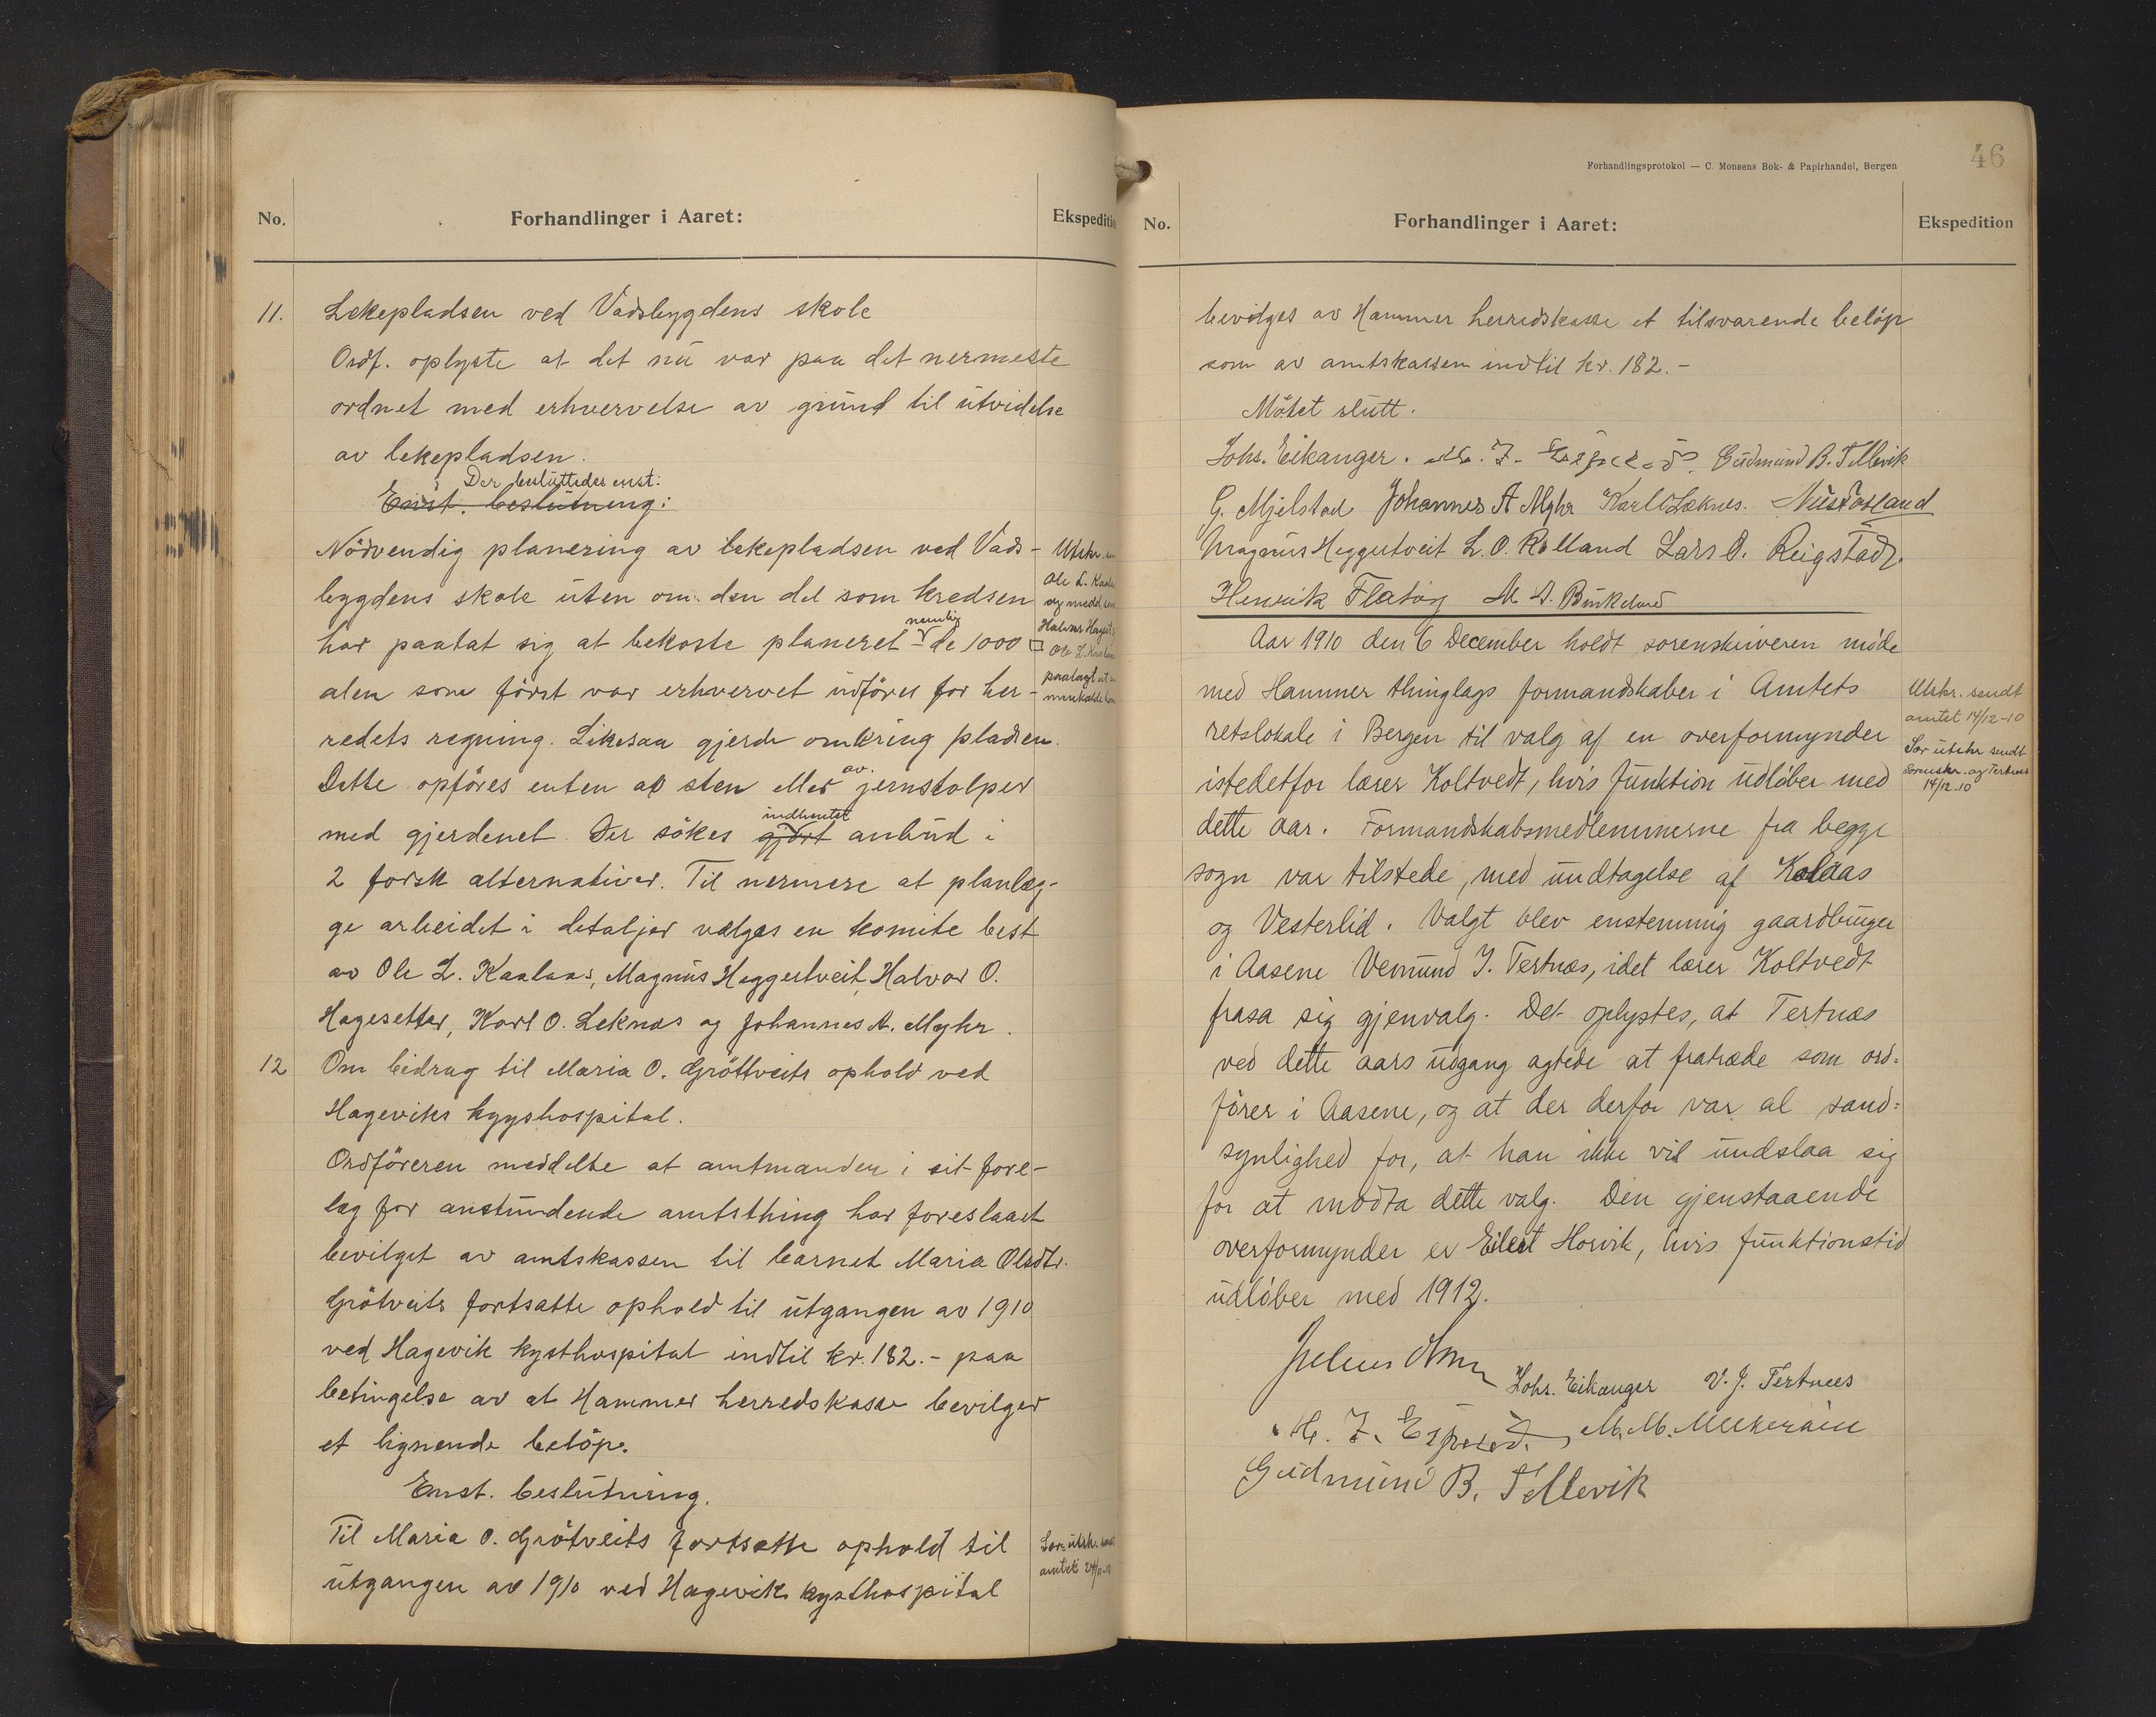 No.
Forhandlinger i Aaret:
Ekspedition
11.
Lekepladsen ved Vadsbygdens skole
Ordf. oplyste at det nu var paa det nermeste
ordnet med erhvervelse av grund til utvidelse
av lekepladsen.
Der besluttedes enst:
Enst. beslutning:
Nödvendig planering av lekepladsen ved Vads-
bygdens skole uten om den del som kredsen
har paatat sig at bekoste planeret - nemlig de 1000 □
alen som först var erhvervet utföres for her-
redets regning. Likesaa gjerde omkring pladsen.
Dette opföres enten av sten eller av jernstolper
med gjerdenet. Der sökes gjort indhentet anbud i
2 forsk alternativer. Til nermere at planlæg-
ge arbeidet i detaljer vælges en komite best
av Ole L. Kaalaas, Magnus Heggertveit, Halvor O.
Hagesetter, Karl O. Leknes og Johannes A. Myhr.
Utskr.
Ole L.
og medd.
Halvor
Ole L.
paalagt
12
Om bidrag til Maria O. Gröttveits ophold ved
Hageviks kyshospital.
Ordföreren meddelte at amtmanden i sit fore-
læg for anstundende amtsthing har foreslaaet
bevilget av amtskassen til barnet Maria Olsdtr.
Grötveits fortsatte ophold til utgangen av 1910
ved Hagevik kysthospital indtil kr. 182.- paa
betingelse av at Hammer herredskasse bevilger
et lignende belöp.
Enst. beslutning.
Til Maria O. Grötveits fortsatte ophold til
utgangen av 1910 ved Hagevik kysthospital
Sær utskr.
amtet 24/11-10
Forhandlingsprotokol — C. Monsens Bok- & Papirhandel, Bergen
46
No.
Forhandlinger i Aaret:
Ekspedition
bevilges av Hammer herredskasse et tilsvarende belöp
som av amtskassen indtil kr. 182.-
Mötet slutt.
Johs. Eikanger. Gudmund B. Tellevik
G. Mjelstad Johannes A Myhr Karl O Leknes.
Magnus Heggertveit L. O. Rolland Lars O. Reigstad.
Henrik Flatöy
Aar 1910 den 6 December holdt sorenskriveren möde
med Hammer thinglags formandskaber i Amtets
retslokale i Bergen til valg af en overformynder
istedetfor lærer Koltvedt, hvis funktion udlöber med
dette aar. Formandskabsmedlemmerne fra begge
sogn var tilstede, med undtagelse af Kalaas
og Vesterlid. Valgt blev enstemmig gaardbruger
i Aasene Vemund J. Tertnæs, idet lærer Koltvedt
frasa sig gjenvalg. Det oplystes, at Tertnæs
ved dette aars udgang agtede at fratræde som ord=
förer i Aasene, og at der derfor var al sand=
synlighed for, at han ikke vil undslaa sig
for at modta dette valg. Den gjenstaaende
overformynder er Eilert Horvik, hvis funktionstid
udlöber med 1912.
Utskr. sendt
amtet 14/12-10
Sær utskr sendt
Sorenskr. og Tertnes
14/12-10
Johs. Eikanger V. J. Tertnees
Gudmund B. Tellevik